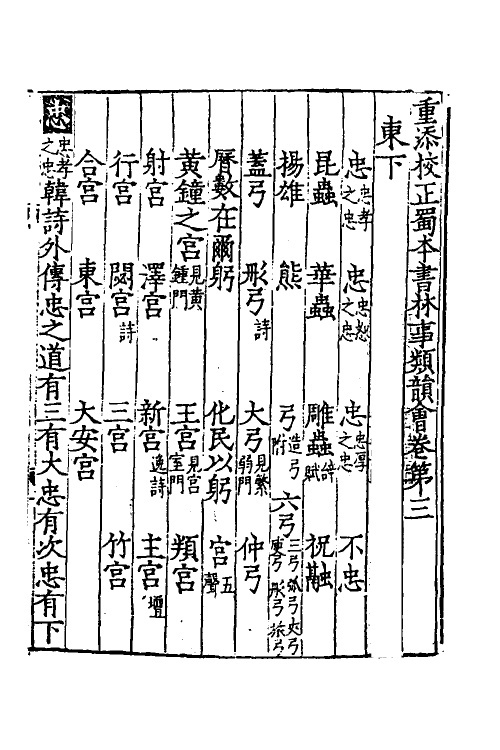 重添校正蜀本書林事類韻會卷第三
東下
忠忠孝之忠 忠忠恕之忠 忠忠厚之忠 不忠
昆蟲 華蟲 雕蟲辭賦 祝融
揚雄 熊 弓造弓附 六弓
蓋弓 彤弓詩 大弓見繁弱門 仲弓
曆數在爾躬 化民以躬 宮五聲
黃鐘之宮見黃鍾門 王宮見宮室門 頖宮
射宮 澤宮 新宮逸詩 主宮壇
行宮 閟宮詩 三宮 竹宮
合宮 東宮 大安宮
忠忠孝之忠韓詩外傳忠之道有三有大忠有次忠有下